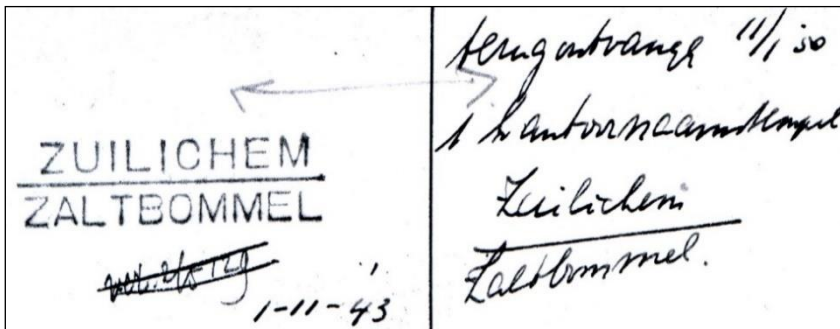 ZUILICHEM
ZALTBOMMEL
1-11-43
terugontvange 11/1 50
1 kantoornaamstempel
Zuilichem
Zaltbommel.